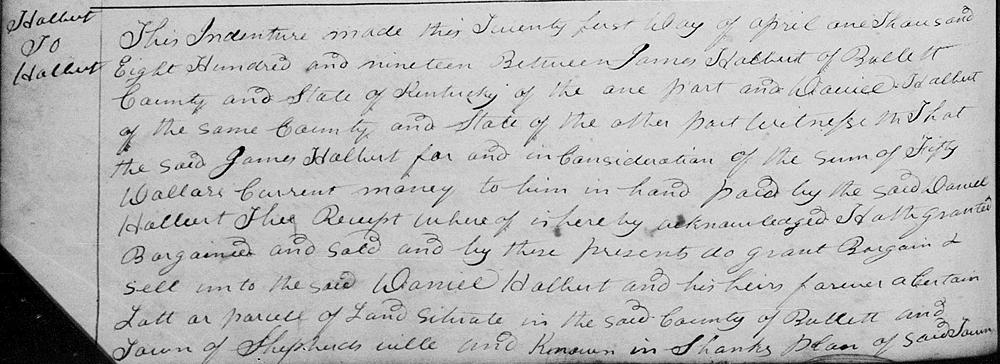 Halbert
To
Halbert
This Indenture made this Twenty first Day of april one Thousand
Eight Hundred and nineteen Between James Halbert of Bullett
County and State of Kentucky of the one part and Daniel Halbert
of the same County and State of the other part Witnesseth That
the said James Halbert for and in Consideration of the sum of Fifty
Dollars Current money to him in hand paid by the said Daniel
Halbert Thee Receipt where of is here by acknowledged Hath granted
Bargained and sold and by these presents do grant Bargain &
sell unto the said Daniel Halbert and his heirs farever a Certain
Latt or parcel of Land situate in the said County of Bullett and
Town of Shepherds ville and Known in Shanks plan of said Town